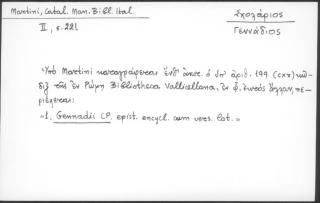 Martini, Catal. Man. Bibl. Ital.
II, σ. 221
Σχολάριος
Γεννάδιος
Ὑπὸ Martini καταγράφεται ὁ ὑπ' ἀριθ. 199 (CXX) κῶ-
διξ τῆς ἐν Ρώμῃ Bibliotheca Vallicellana,
«1, Gennadii CP. epist. encycl. cum vers. lat.»